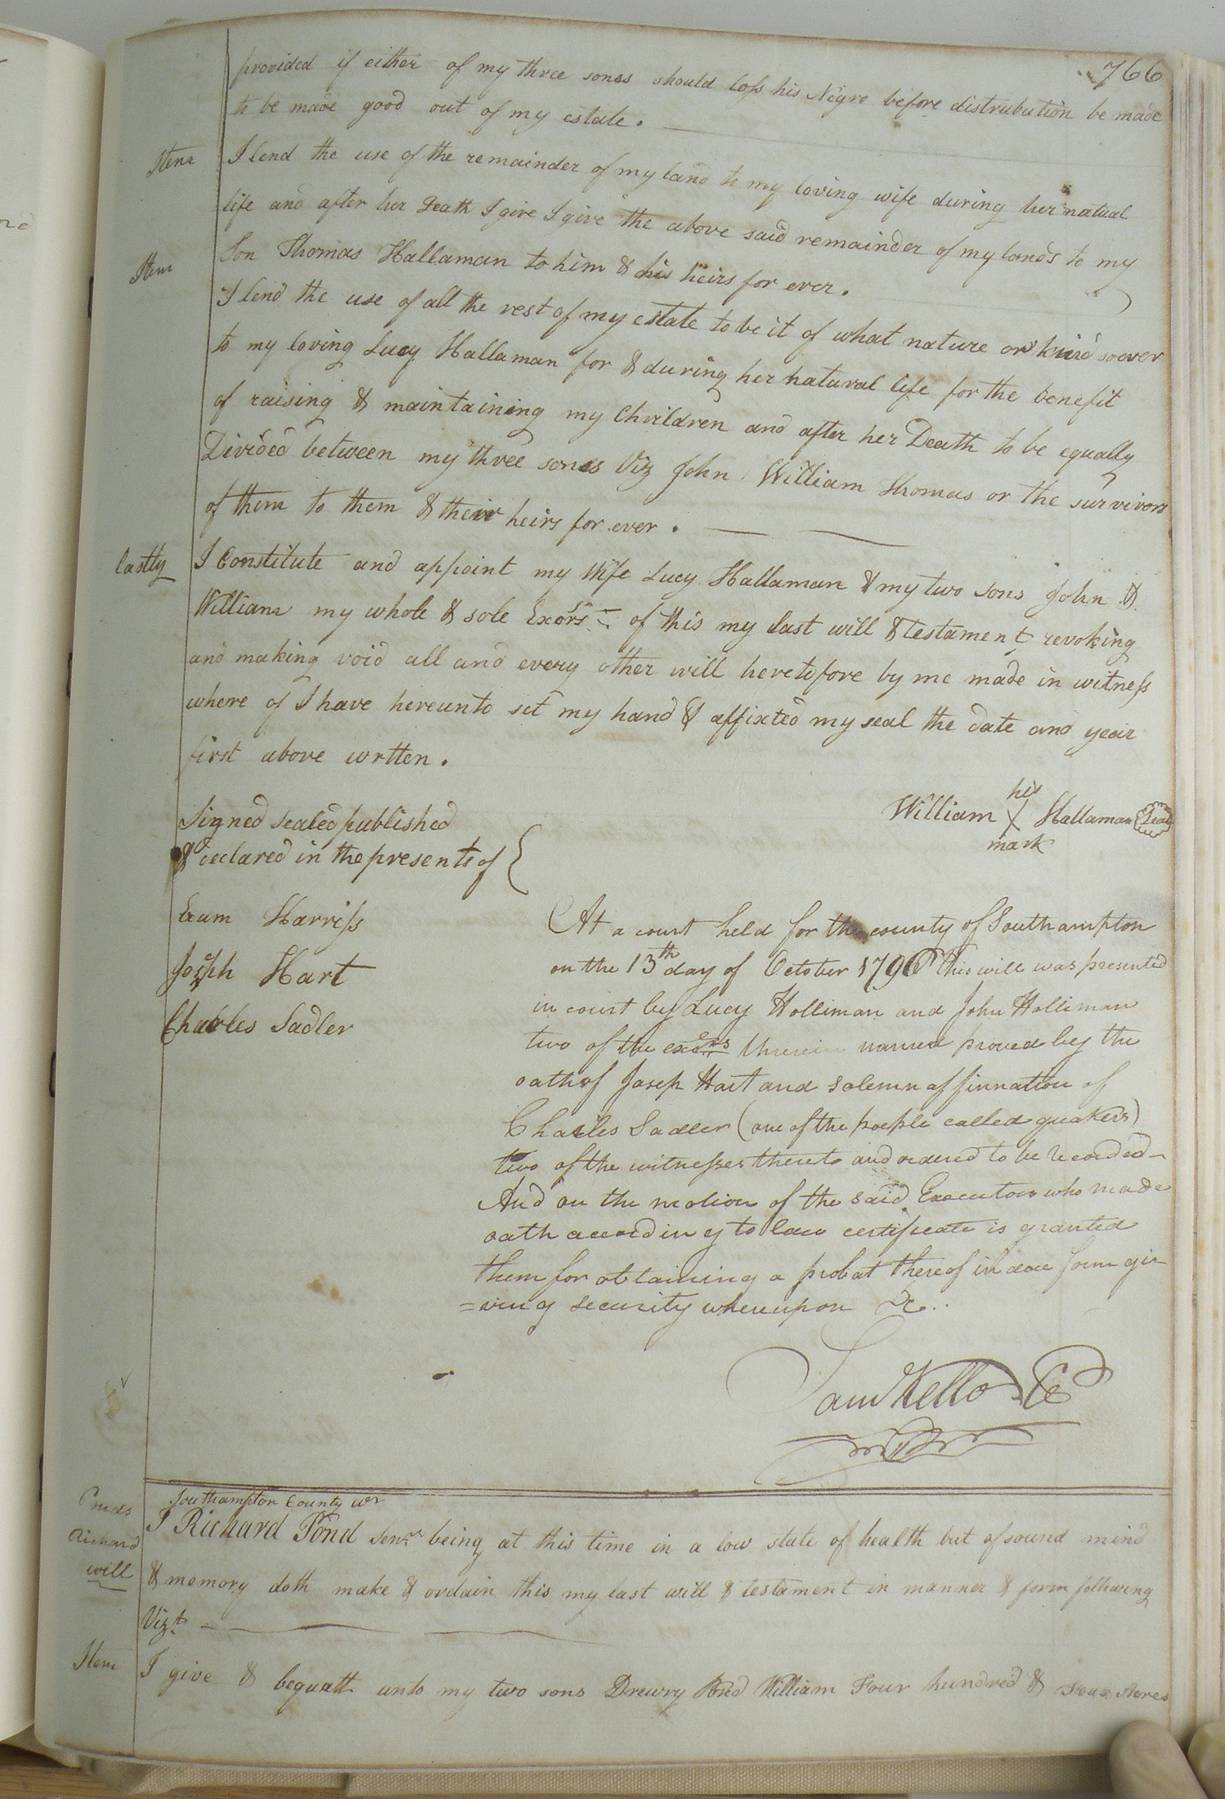 766
provided if either of my three sones should loss his Negro before distrubution be made
to be made good out of my estate.
Item I lend the use of the remainder of my land to my loving wife during her natual
life and after her Death I give I give the above said remainder of my lands to my
Son Thomas Hallaman to him & his heirs for ever.
Item I lend the use of all the rest of my estate to be it of what nature or kind soever
to my loving Lucy Hallaman for & during her natural life for the benefit
of raising & maintaining my Children and after her Death to be equally
Divided between my three sones Viz John William Thomas or the survivors
of them to them & their heirs for ever.
lastly I Constitute and appoint my Wife Lucy Hallaman & my two sons John &
William my whole & sole Exors of this my last will & testament revoking
and making void all and every other will heretofore by me made in witness
where of I have hereunto set my hand & affixted my seal the date and year
first above wrtten.
Signed sealed published
& declared in the presents of
his
William X Hallaman Seal
mark
Exum Harriss
Joseph Hart
Charles Sadler
At a court held for the county of Southampton
on the 13th day of October 1796 This will was presented
in court by Lucy Holliman and John Holliman
two of the exors therein named proved by the
oath of Joseph Hart and solemn affirmation of
Charles Sadler (one of the poeple called quakers)
two of the witnesses thereto and ordered to be recorded
And on the motion of the said Executors who made
oath according to law certificate is granted
them for obtaining a probat thereof in due form giv-
=ving security whereupon &c..
Saml Kello CC
Ponds
Richard
will
Southampton County
I Richard Pond Senr being at this time in a low state of health but of sound mind
& memory doth make & ordain this my last will & testament in manner & form following
Vizt
Item I give & bequath unto my two sons Drewry Pond William Four hundred & Acres